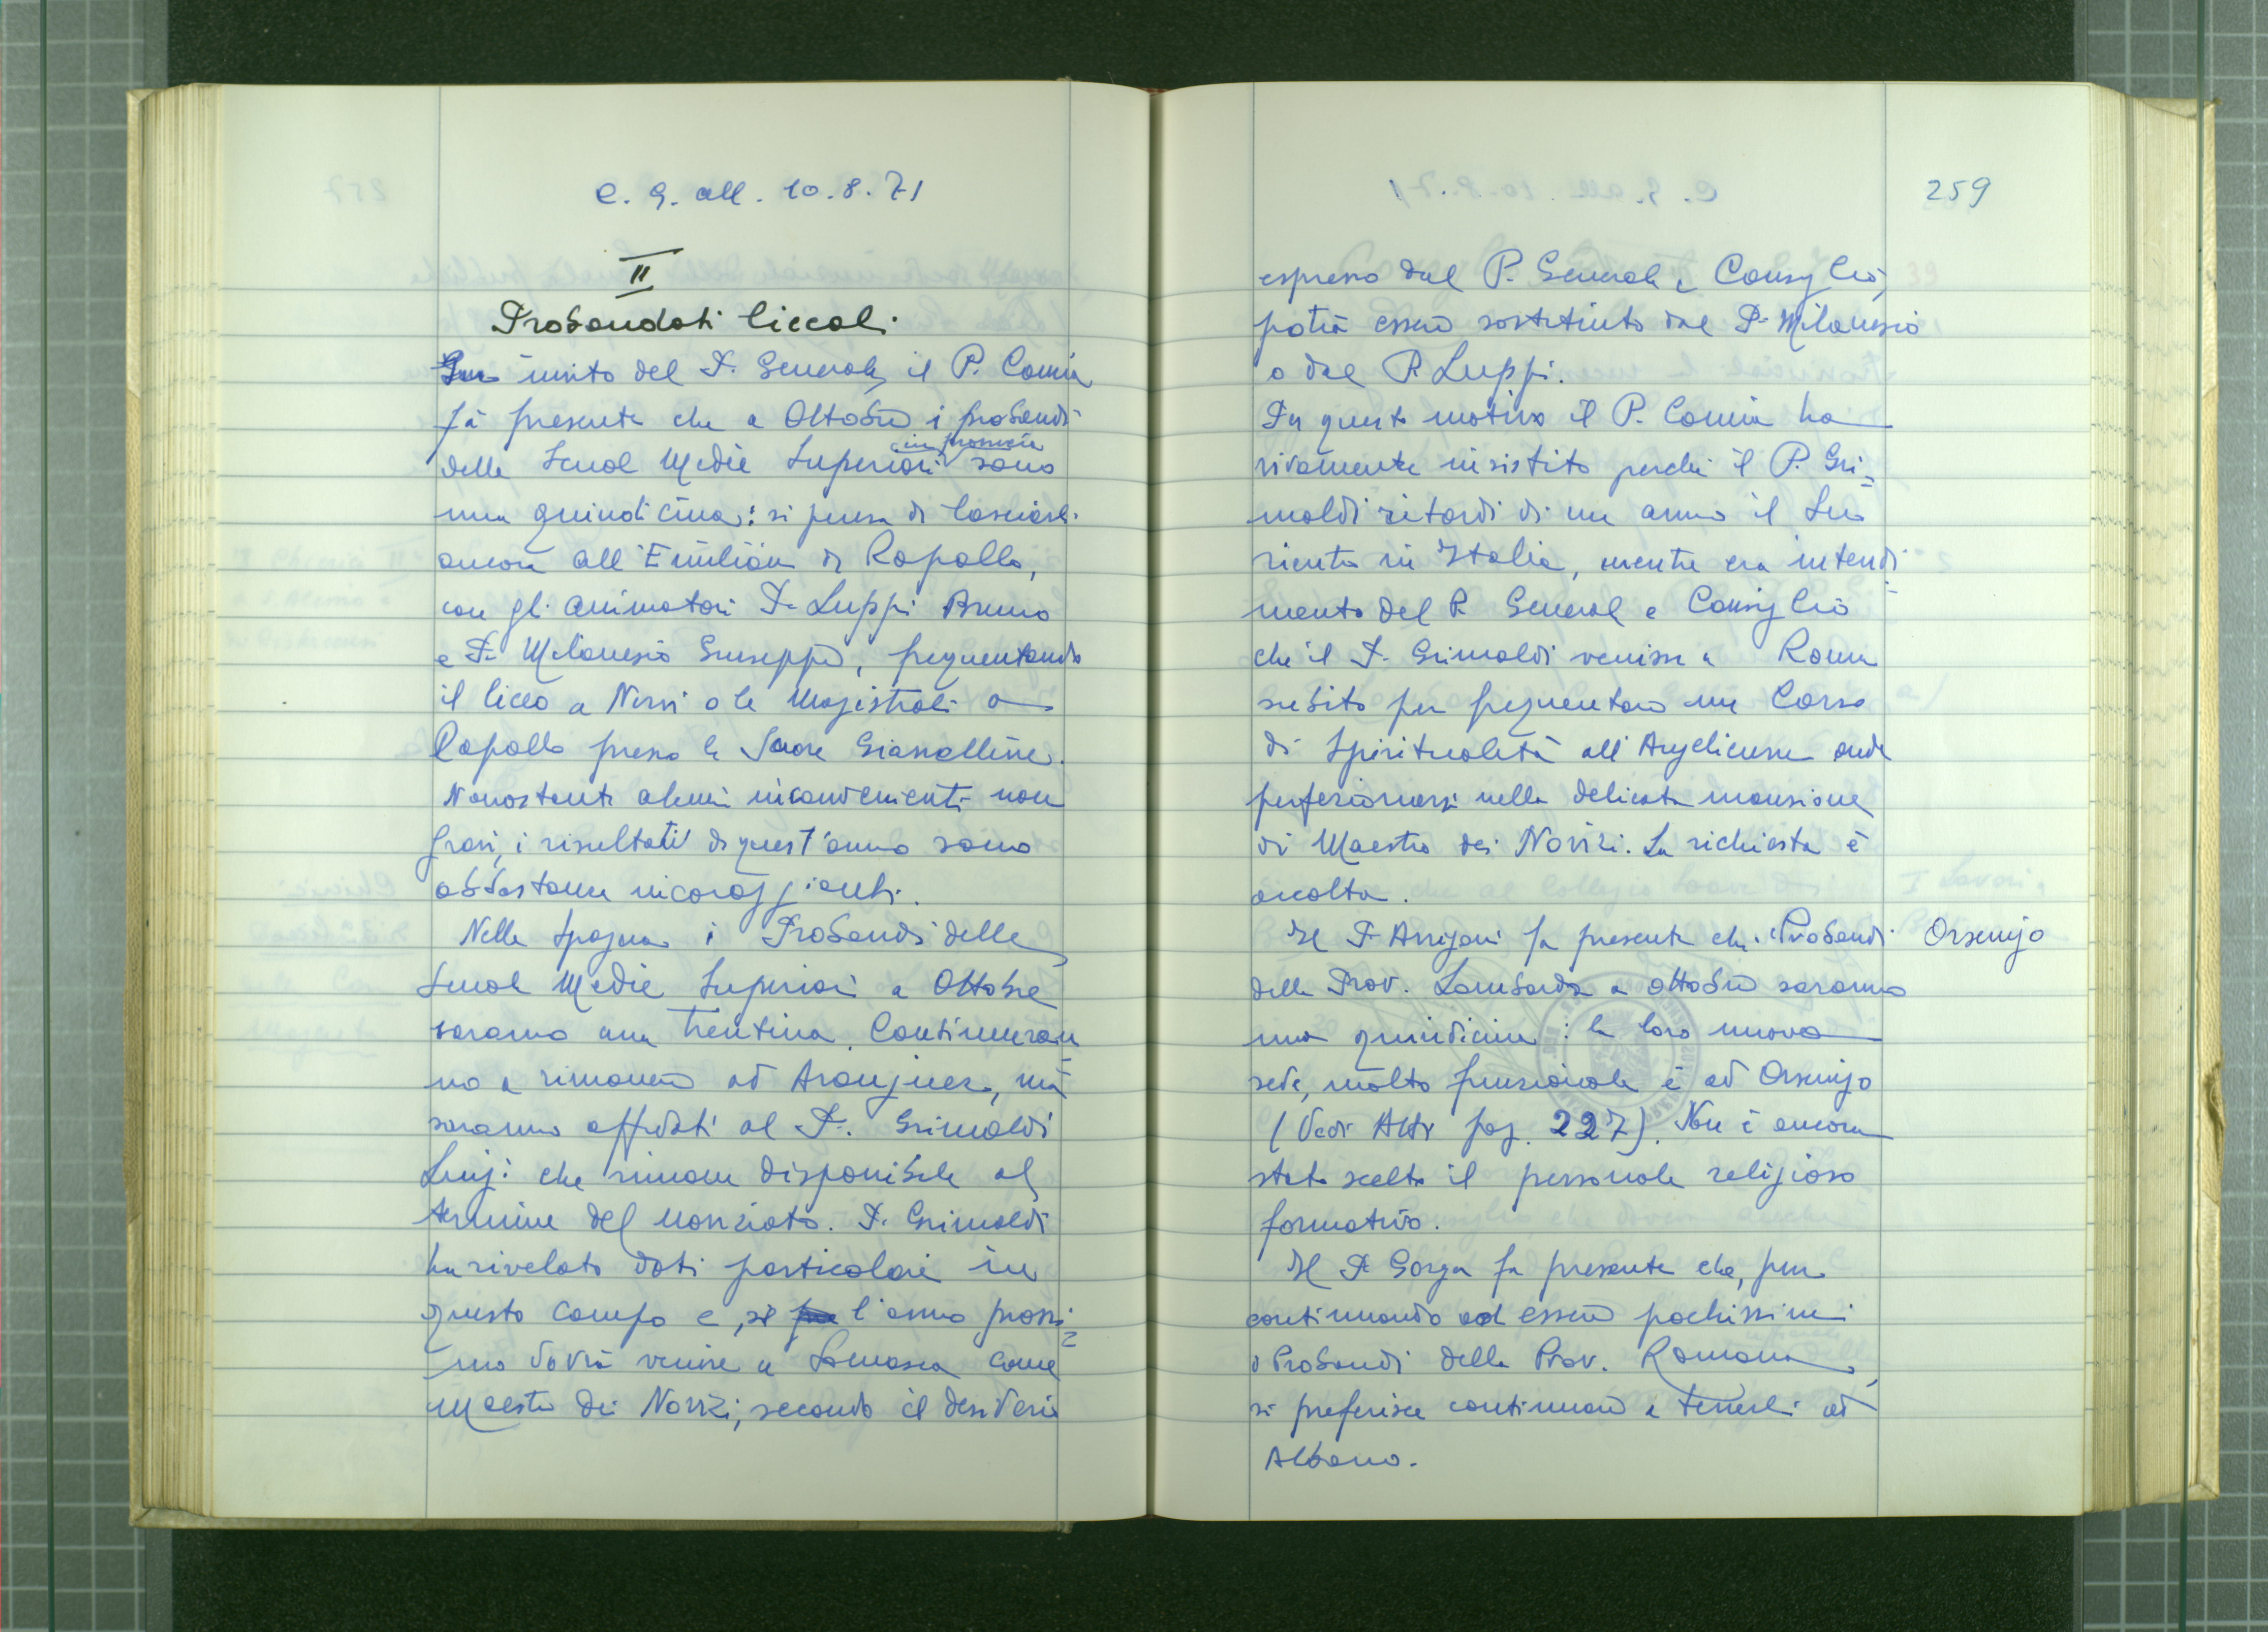 C. G. all. 10.8.71
II
Probandati liceali
Su invito del P. Generale, il P. Comin
fà presente che a Ottobre i probandi
delle Scuole Medie Superiori in provincia sono
una quindicina: si pensa di lasciarli
ancora all'Emiliani di Rapallo,
con gli animatori P. Luppi Bruno
e P. Milanesio Giuseppe, frequentando
il liceo a Nervi o le Magistrali a
Rapallo presso le Suore Gianelline.
Nonostante alcuni inconvenienti non
gravi, i risultati di quest'anno sono
abbastanza incoraggianti.
Nella Spagna i Probandi delle
Scuole Medie Superiori a Ottobre
saranno una trentina. Continueran
no a rimanere ad Aranjuez, mà
saranno affidati al P. Grimaldi
Luigi che rimane disponibile al
termine del noviziato. P. Grimaldi
ha rivelato doti particolari in
questo campo e, se l'anno prossi=
mo dovrà venire a Somasca come
Maestro dei Novizi, secondo il desiderio
259
espresso dal P. Generale e Consiglio,
potrà essere sostituito dal P. Milanesio
o dal P. Luppi.
Per questo motivo il P. Comin ha
vivamente insistito perché il P. Gri=
maldi ritardi di un anno il suo
rientro in Italia, mentre era intendi=
mento del P. Generale e Consiglio
che il P. Grimaldi venisse a Roma
subito per frequentare un Corso
di Spiritualità all'Angelicum onde
perfezionarsi nella delicata mansione
di Maestro dei Novizi. La richiesta è
accolta.
Il P. Arrigoni fa presente che i Probandi
Orsenigo
della Prov. Lombarda a ottobre saranno
una quindicina: la loro nuova
sede, molto funzionale è ad Orsenigo
(Vedi Atti pag. 227). Non è ancora
stato scelto il personale religioso
formativo.
Il P. Gorga fa presente che, pur
continuando ad essere pochissimi
i Probandi della Prov. Romana,
si preferisce continuare a tenerli ad
Albano.